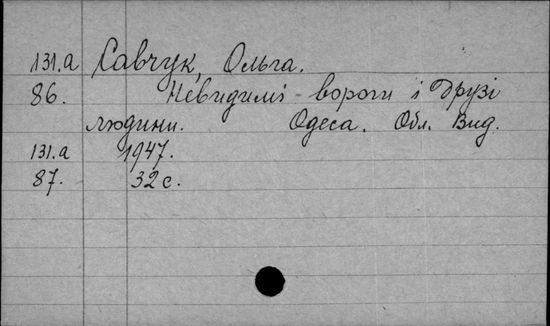 131.а Савчук, Ольга.
86. Невидимі вороги і Друзі
людини. Одеса. Обл. Вид.
131.а 1947.
87. 32 с.